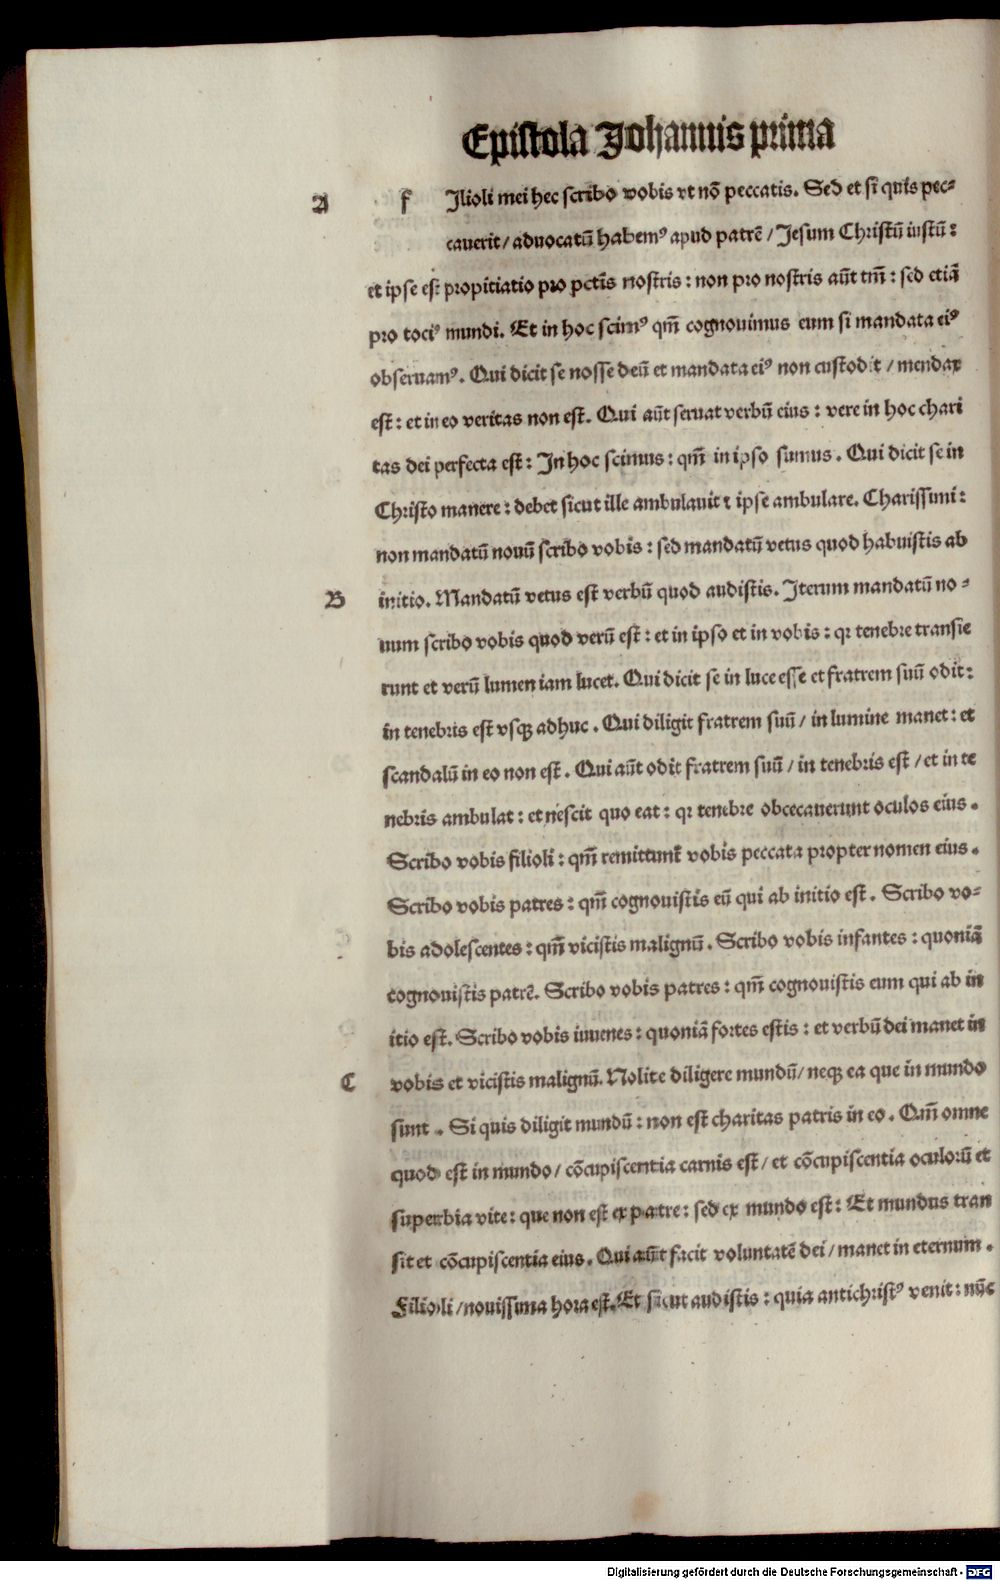 Epistola Johannis prima
A f Jlioli mei hec scribo vobis vt nõ peccatis. Sed et si quis pec⸗
cauerit / aduocatũ habemꝰ apud patrẽ / Jesum Christũ iustũ:
et ipse est propitiatio pro pctis̃ nostris: non pro nostris aũt tm̃: sed etiã
pro tociꝰ mundi. Et in hoc scimꝰ qm̃ cognouimus eum si mandata eiꝰ
obseruamꝰ. Qui dicit se nosse deũ et mandata eiꝰ non custodit / mendax
est: et in eo veritas non est. Qui aũt seruat verbũ eius: vere in hoc chari
tas dei perfecta est: Jn hoc scimus: qm̃ in ipso sumus. Qui dicit se in
Christo manere: debet sicut ille ambulauit ⁊ ipse ambulare. Charissimi:
non mandatũ nouũ scribo vobis: sed mandatũ vetus quod habuistis ab
B initio. Mandatũ vetus est verbũ quod audistis. Jterum mandatũ no⸗
uum scribo vobis quod verũ est: et in ipso et in vobis: qꝛ tenebre transie
runt et verũ lumen iam lucet. Qui dicit se in luce esse et fratrem suũ odit:
in tenebris est vsqꝫ adhuc. Qui diligit fratrem suũ / in lumine manet: et
scandalũ in eo non est. Qui aũt odit fratrem suũ / in tenebris est / et in te
nebris ambulat: et nescit quo eat: qꝛ tenebre obcecauerunt oculos eius.
Scribo vobis filioli: qm̃ remittunt̃ vobis peccata propter nomen eius.
Scribo vobis patres: qm̃ cognouistis eũ qui ab initio est. Scribo vo⸗
bis adolescentes: qm̃ vicistis malignũ. Scribo vobis infantes: quoniã
cognouistis patrẽ. Scribo vobis patres: qm̃ cognouistis eum qui ab in
itio est. Scribo vobis iuuenes: quoniã fortes estis: et verbũ dei manet in
C vobis et vicistis malignũ. Nolite diligere mundũ / neqꝫ ea que in mundo
sunt. Si quis diligit mundũ: non est charitas patris in eo. Qm̃ omne
quod est in mundo / cõcupiscentia carnis est / et cõcupiscentia oculorũ et
superbia vite: que non est ex patre: sed ex mundo est: Et mundus tran
sit et cõcupiscentia eius. Qui aũt facit voluntatẽ dei / manet in eternum.
Filioli / nouissima hora est. Et sicut audistis: quia antichristꝰ venit: nũc
Digitalisierung gefördert durch die Deutsche Forschungsgemeinschaft - DFG